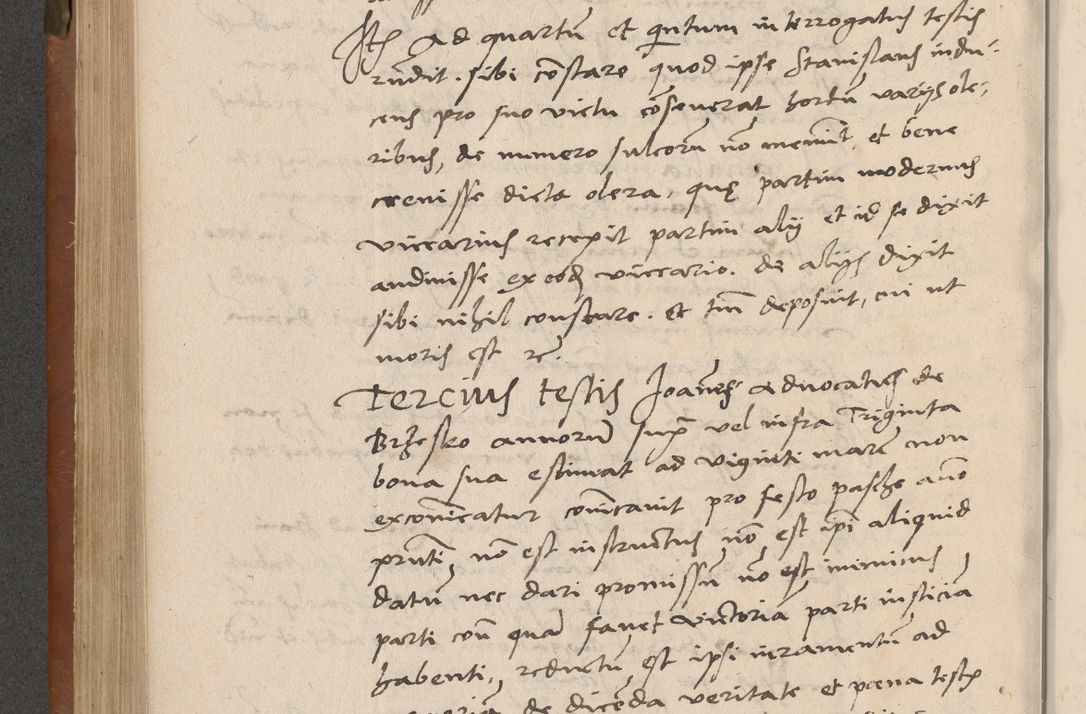 Ite(m) Ad quartu(m) et qui(n)tum interrogatus testis
ru(n)dit. sibi co(n)stare quod ipse Stanislaus indu-
cens pro suo victu co(n)severat hortu(m) varijs ole-
ribus, de numero sulcoru(m) no(n) meminit, et bene
crevisse dicta olera, quę partim modernus
viccarius recepit partim alij et id se dixit
audivisse ex eod(em) viccario. de alijs dixit
sibi nihil constare. Et t(antu)m deposuit, cui ut
moris est re(.)
Tercius testis Joan(n)es Advocatus de
Brzesko annoru(m) sup(ra) vel infra Triginta
bona sua estimat ad viginti marc(as) non
exco(mmun)icatur co(mmun)icavit pro festo pasche an(n)o
pr(ese)nti, no(n) est instructus, no(n) est ip(s)i aliquid
datu(m) nec dari promissu(m) no(n) est inimicus
parti co(n)(tra) qua(m) favet victoria(m) parti iusticia(m)
habenti, reductu(m) est ipsi iuramentu(m) ad
de dice(n)da veritate et pœna test(is)